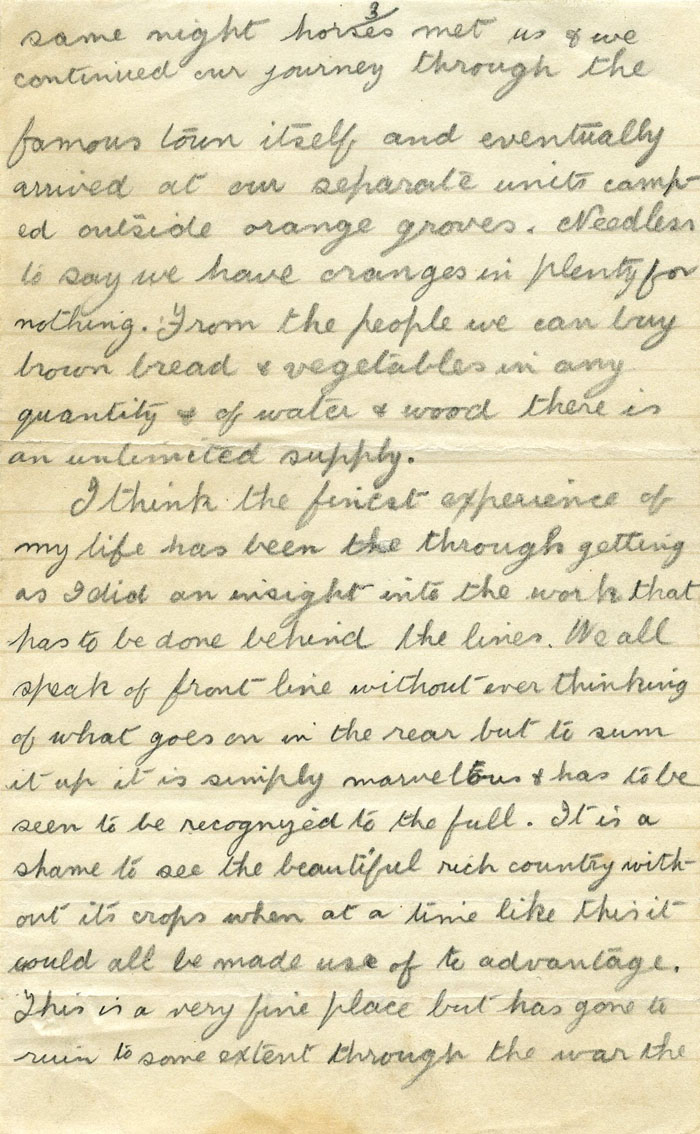 3
same night horses met us & we
continued our journey through the
famous town itself, and eventually
arrived at our separate units camp-
ed outside orange groves. Needless
to say we have oranges in plenty for
nothing. From the people we can buy
brown bread & vegetables in any
quantity & of water & wood there is
an unlimited supply.
I think the finest experience of
my life has been the through getting
as I did an insight into the work that
has to be done behind the lines. We all
speak of front line without ever thinking
of what goes on in the rear but to sum
it up it is simply marvellous & has to be
seen to be recognized to the full. It is a
shame to see the beautiful rich country with-
out its crops when at a time like this it
could all be made use of to advantage.
This is a very fine place but has gone to
ruin to some extent through the war the